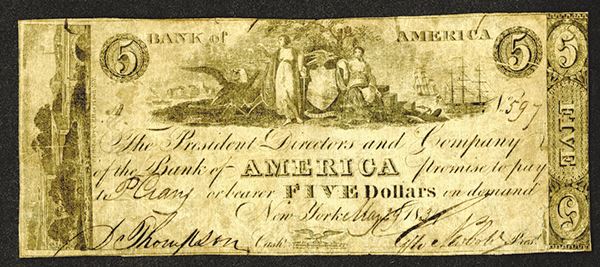 5 BANK of AMERICA 5
A No. 597
The President Directors and Company
of the Bank of AMERICA promise to pay
to P. Crary or bearer FIVE Dollars on demand
New York May 183
Thompson Cash. Pres.
5
FIVE
5